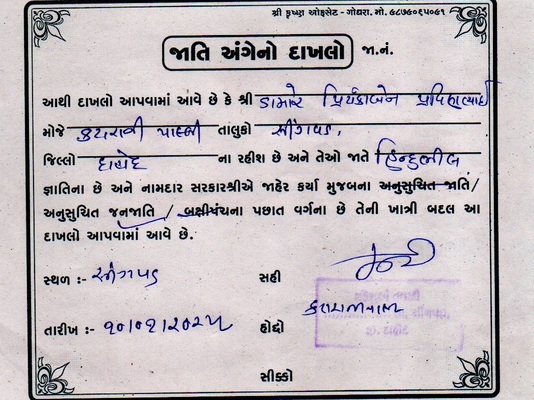 શ્રી ક્રૃષ્ણ ઓફસેટ - ગોધરા. મો. ૯૮૭૯૦૬૫૦૯૧
જાતિ અંગેનો દાખલો જા.નં.
આથી દાખલો આપવામાં આવે છે કે શ્રી ડામોર પ્રિયંકાબેન
મોજે પાલ્લી તાલુકો સીંગવડ,
જિલ્લો દાહોદ ના રહીશ છે અને તેઓ જાતે હિન્દુભીલ
જ્ઞાતિના છે અને નામદાર સરકારશ્રીએ જાહેર કર્યા મુજબના અનુસુચિત જાતિ/
અનુસુચિત જનજાતિ / બક્ષીપંચના પછાત વર્ગના છે તેની ખાત્રી બદલ આ
દાખલો આપવામાં આવે છે.
સ્થળ :- સીંગવડ સહી
તારીખ :- હોદ્દો
સીક્કો